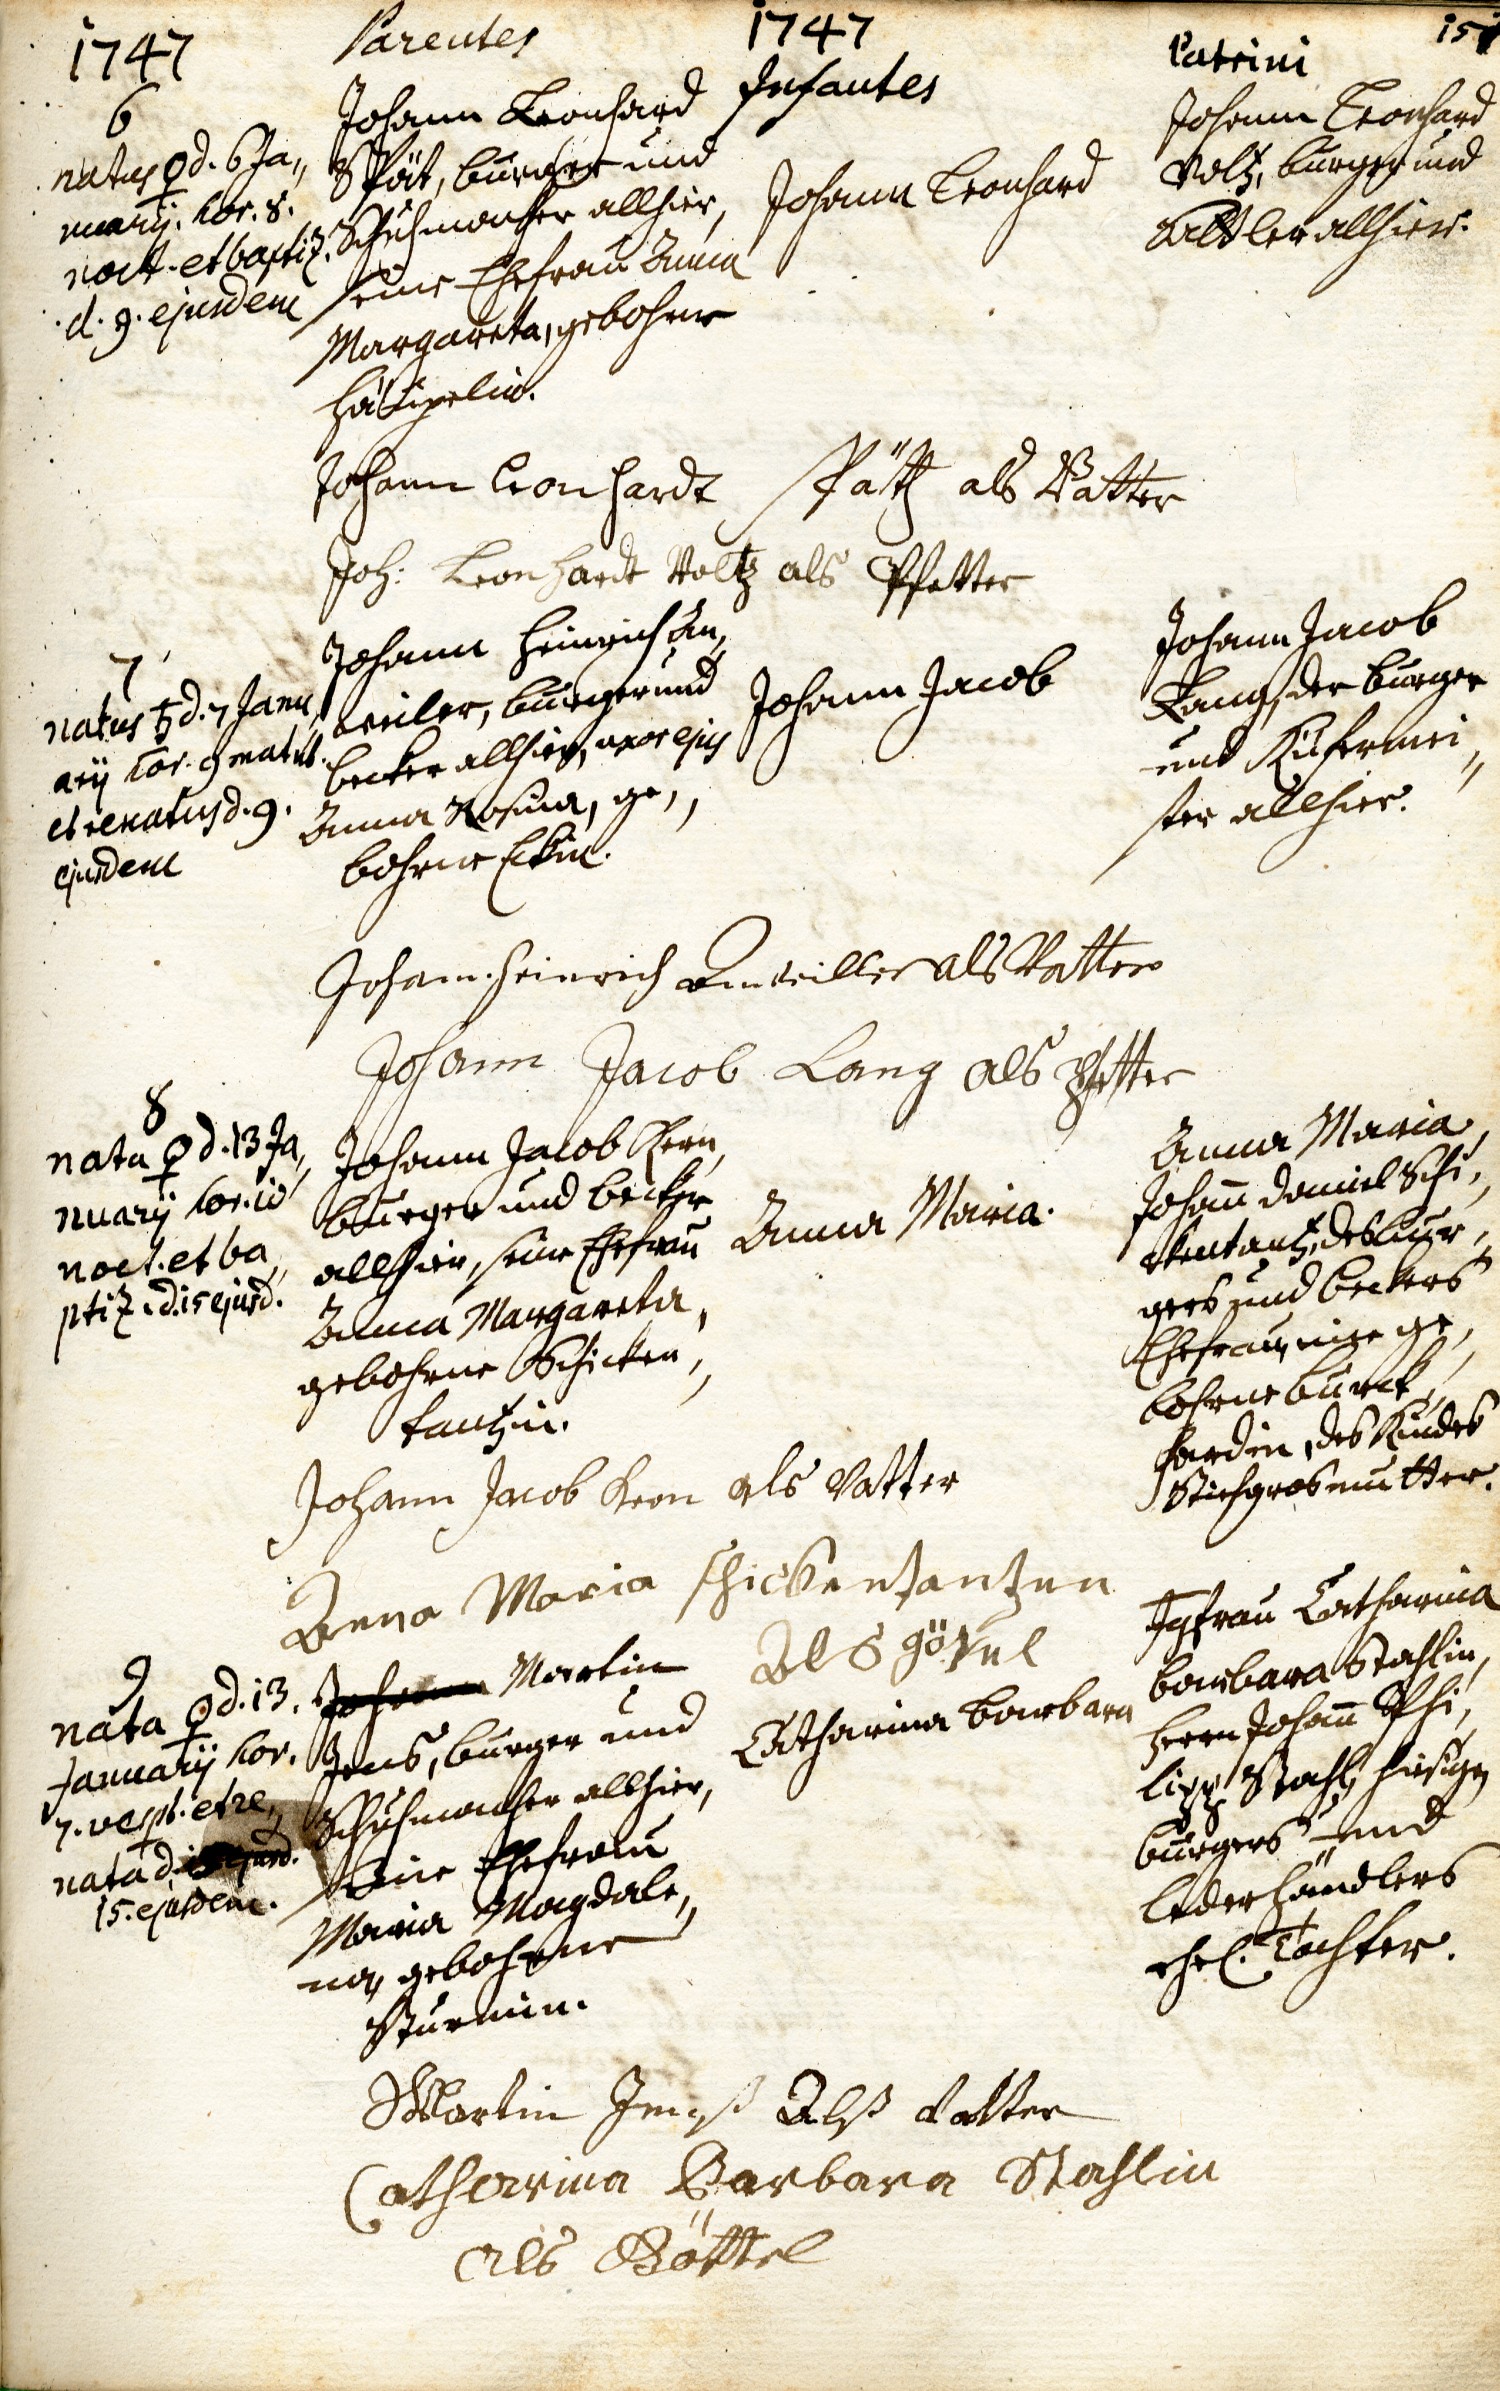 1747
Parentes
1747
Infantes
Patrini
151
6
natus ♀ d. 6 Ja,,
nuarij. hor. 8.
noct. et baptiz.
d. 9. ejusdem
Johann Leonhard
Spät, burger und
Schuhmacher allhier,
seine Ehefrau Anna
Margareta, gebohrne
Johann Leonhard
Johann Leonhard
Voltz, burger und
Sattler allhier.
Johann Leonhardt Späth als Vatter
Joh: Leonhardt Voltz als Pfetter
7
natus ♄ d. 7 Janu,
arij hor. 9 matut.
et renatus d. 9.
ejusdem
Johann Heinrich An,,
weiler, burger und
becker allhier, uxor ejus
Anna Rosina, ge,,
bohrne Eckin.
Johann Jacob
Johann Jacob
Lang, der burger
und Küfermei,,
ster allhier.
Johann Heinrich Anweiller als Vatter
Johann Jacob Lang als Pfetter
8
nata ♀ d. 13 Ja,,
nuarij hor. 10
noct. et ba,,
ptiz. d. 15 ejusd.
Johann Jacob Kern,
burger und becker
allhier, seine Ehefrau
Anna Margareta,
gebohrne Schicken,,
tantzin.
Anna Maria.
Anna Maria,
Johañ Daniel Schi,,
ckentantz, des bur,,
gers und beckers
Ehefrau, eine ge,,
bohrne burck,,
hardin, des Kindes
Stiefgrosmutter.
Johann Jacob Kern als Vatter
Anna Maria schickentantzen
Als götel
9
nata ♀ d. 13.
Januarij hor.
7. vesp. et re,,
nata d. ejusd.
15. ejusdem.
Johann Martin
Jens, burger und
Schuhmacher allhier,
seine Ehefrau
Maria Magdale,,
na, gebohrne
Sturmin.
Catharina Barbara
Jgfrau Catharina
barbara Stahlin,
Herrn Johañ Phi,,
lipp Stahl, hiesigen
burgers und
lederhändlers
ehel. Tochter.
Martin Jenß Alß Vatter
Catharina Barbara Stahlin
als Göttel